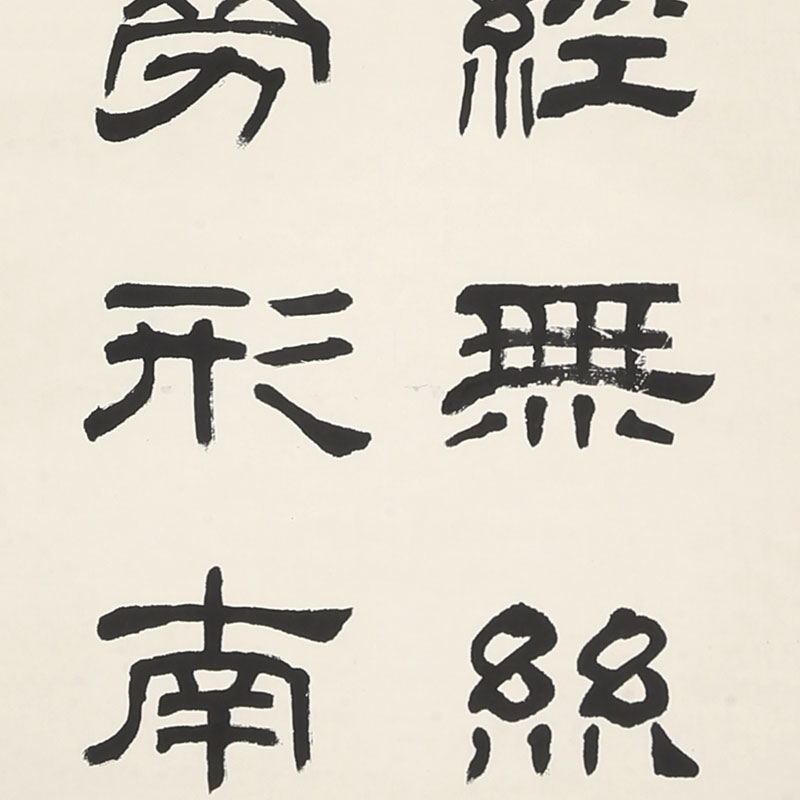 經無絲
勞形南